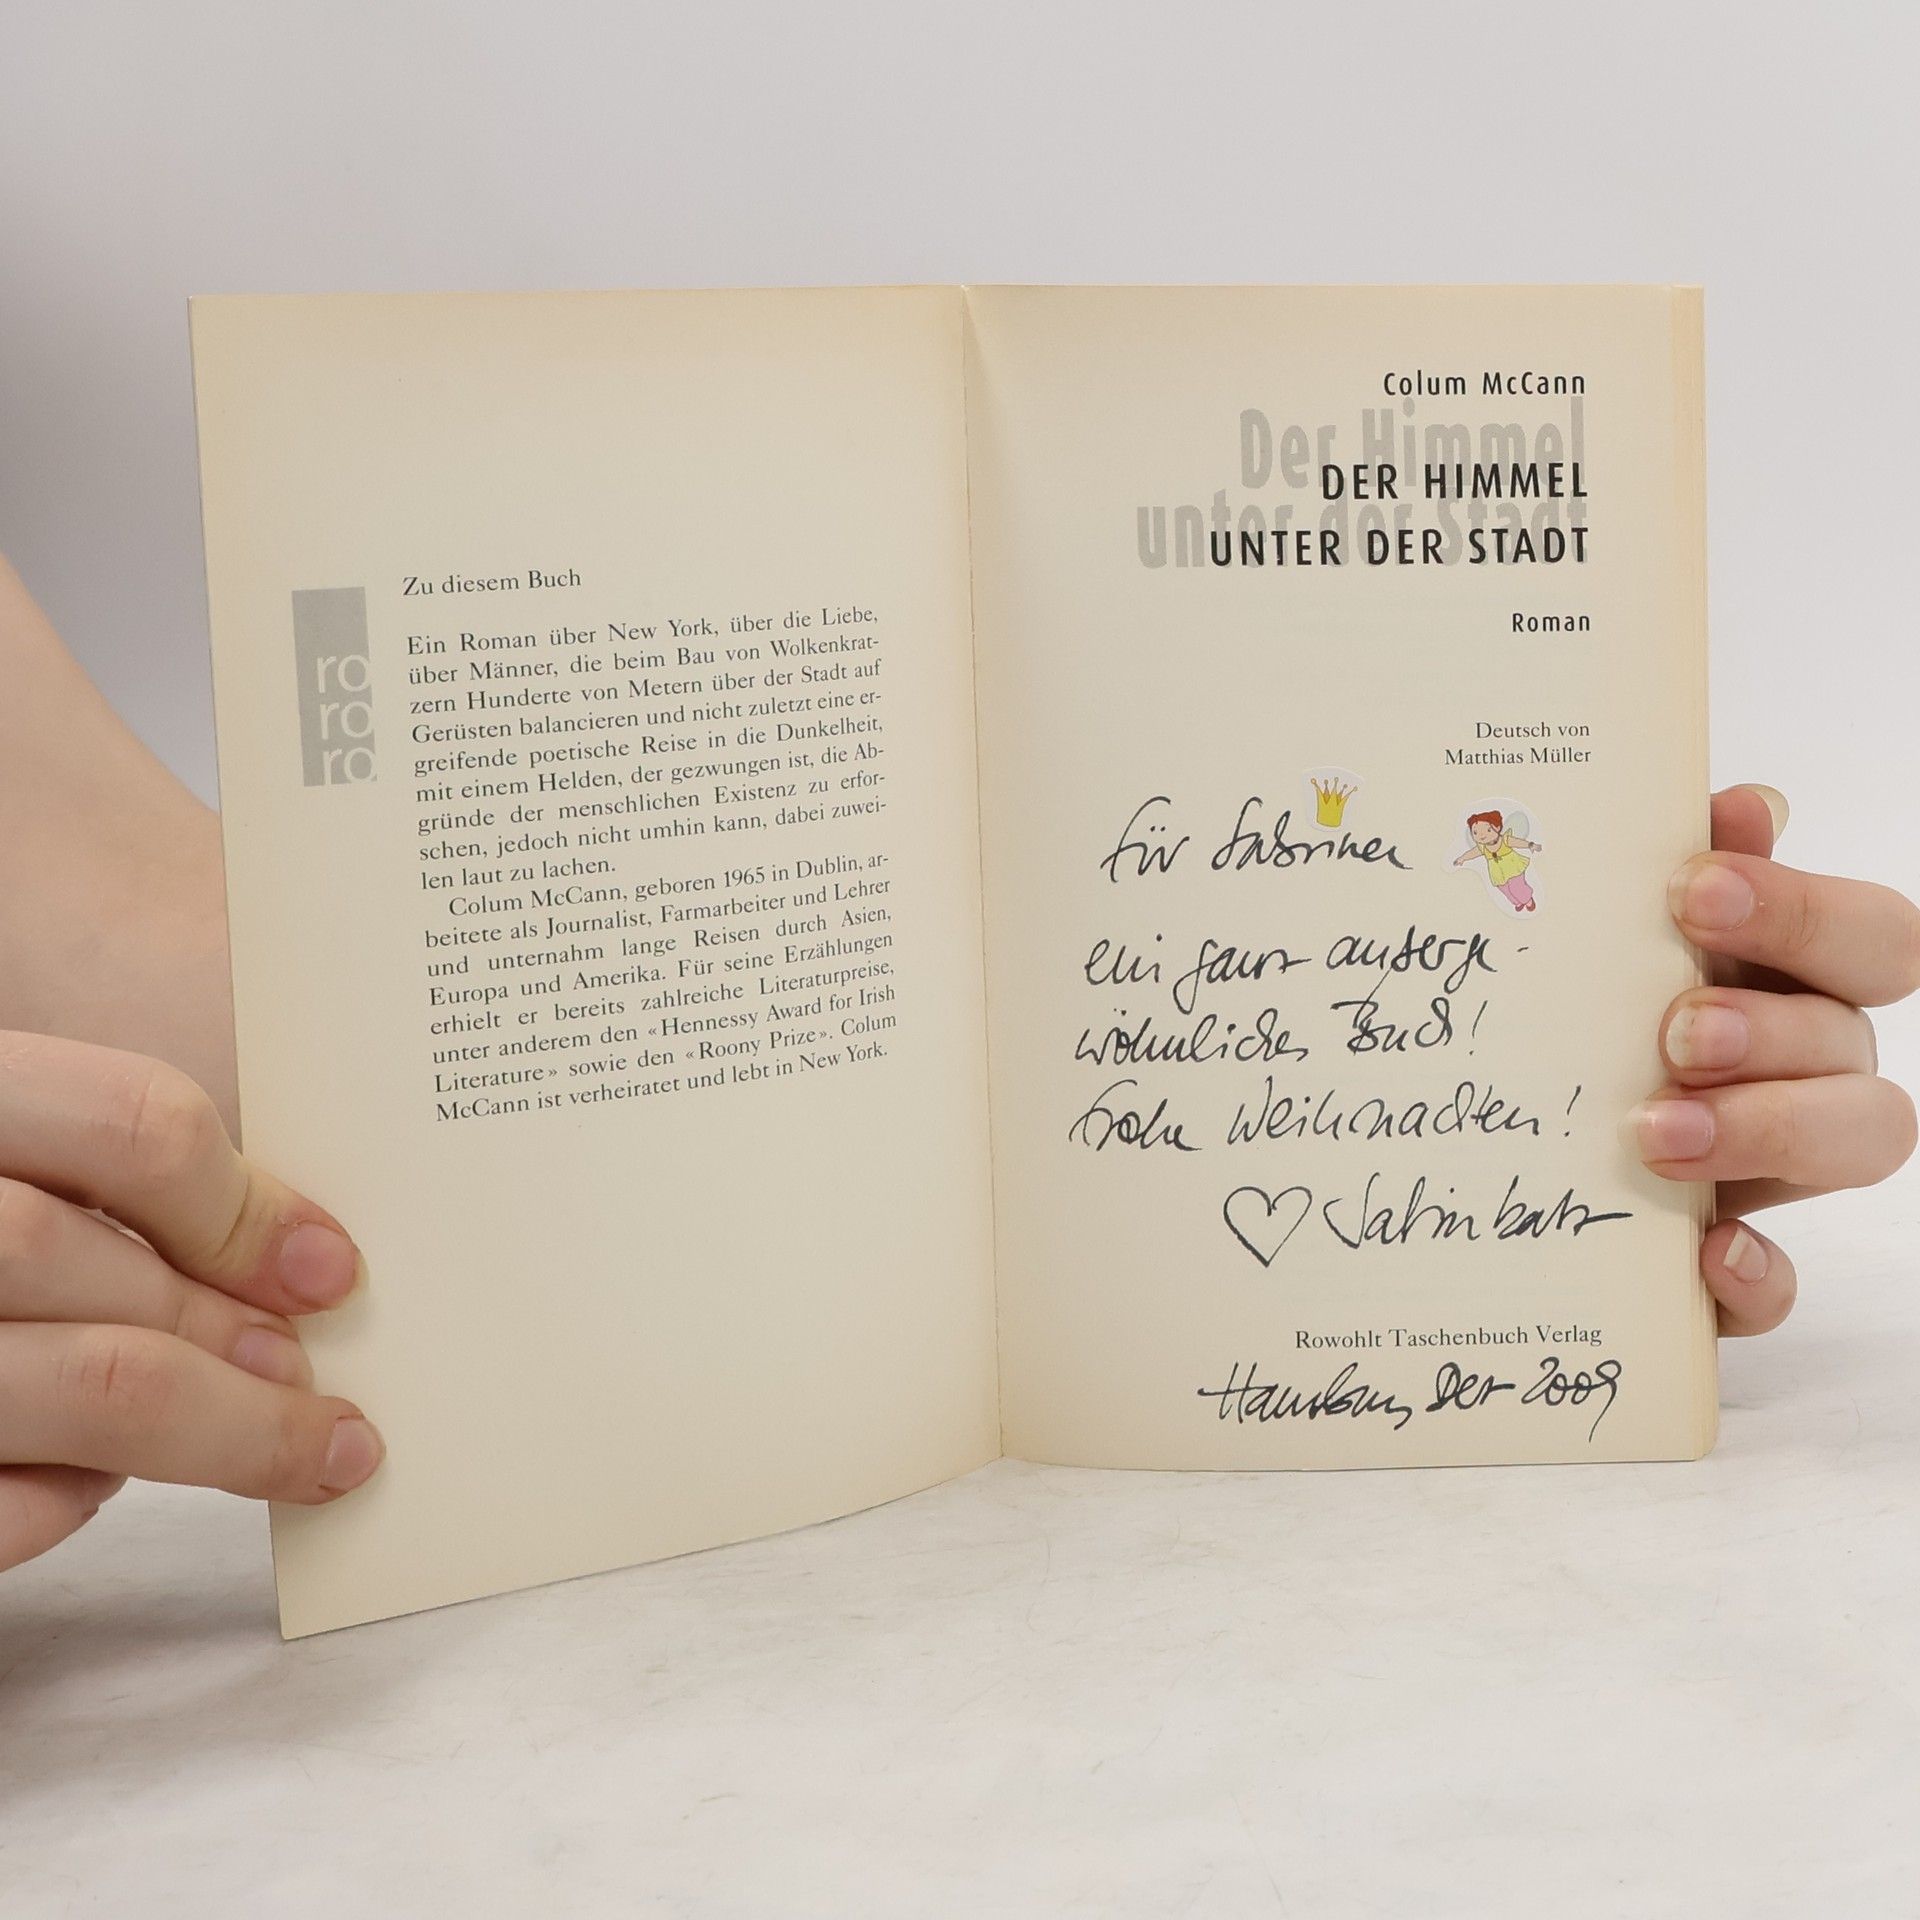 ro
ro
ro
Zu diesem Buch
Ein Roman über New York, über die Liebe,
über Männer, die beim Bau von Wolkenkrat-
zern Hunderte von Metern über der Stadt auf
Gerüsten balancieren und nicht zuletzt eine er-
greifende poetische Reise in die Dunkelheit,
mit einem Helden, der gezwungen ist, die Ab-
gründe der menschlichen Existenz zu erfor-
schen, jedoch nicht umhin kann, dabei zuwei-
len laut zu lachen.
Colum McCann, geboren 1965 in Dublin, ar-
beitete als Journalist, Farmarbeiter und Lehrer
und unternahm lange Reisen durch Asien,
Europa und Amerika. Für seine Erzählungen
erhielt er bereits zahlreiche Literaturpreise,
unter anderem den «Hennessy Award for Irish
Literature» sowie den «Roony Prize». Colum
McCann ist verheiratet und lebt in New York.
Colum McCann
Der Himmel
unter der Stadt
DER HIMMEL
UNTER DER STADT
Roman
Deutsch von
Matthias Müller
für Sabrina
ein ganz außerge-
wöhnliches Buch!
Frohe Weihnachten!
Rowohlt Taschenbuch Verlag
Hamburg Dez 2009